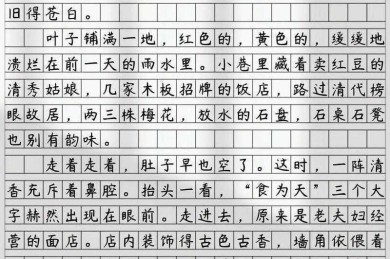 旧得苍白。
叶子铺满一地，红色的，黄色的，缓缓地
溃烂在前一天的雨水里。小巷里藏着卖红豆的
清秀姑娘，几家木板招牌的饭店，路过清代榜
眼故居，两三株梅花，放水的石盘，石桌石凳
也别有韵味。
走着走着，肚子早也空了。这时，一阵清
香充斥着鼻腔。抬头一看，“食为天”三个大
字赫然出现在眼前。走进去，原来是老夫妇经
营的面店。店内装饰得古色古香，墙角依偎着